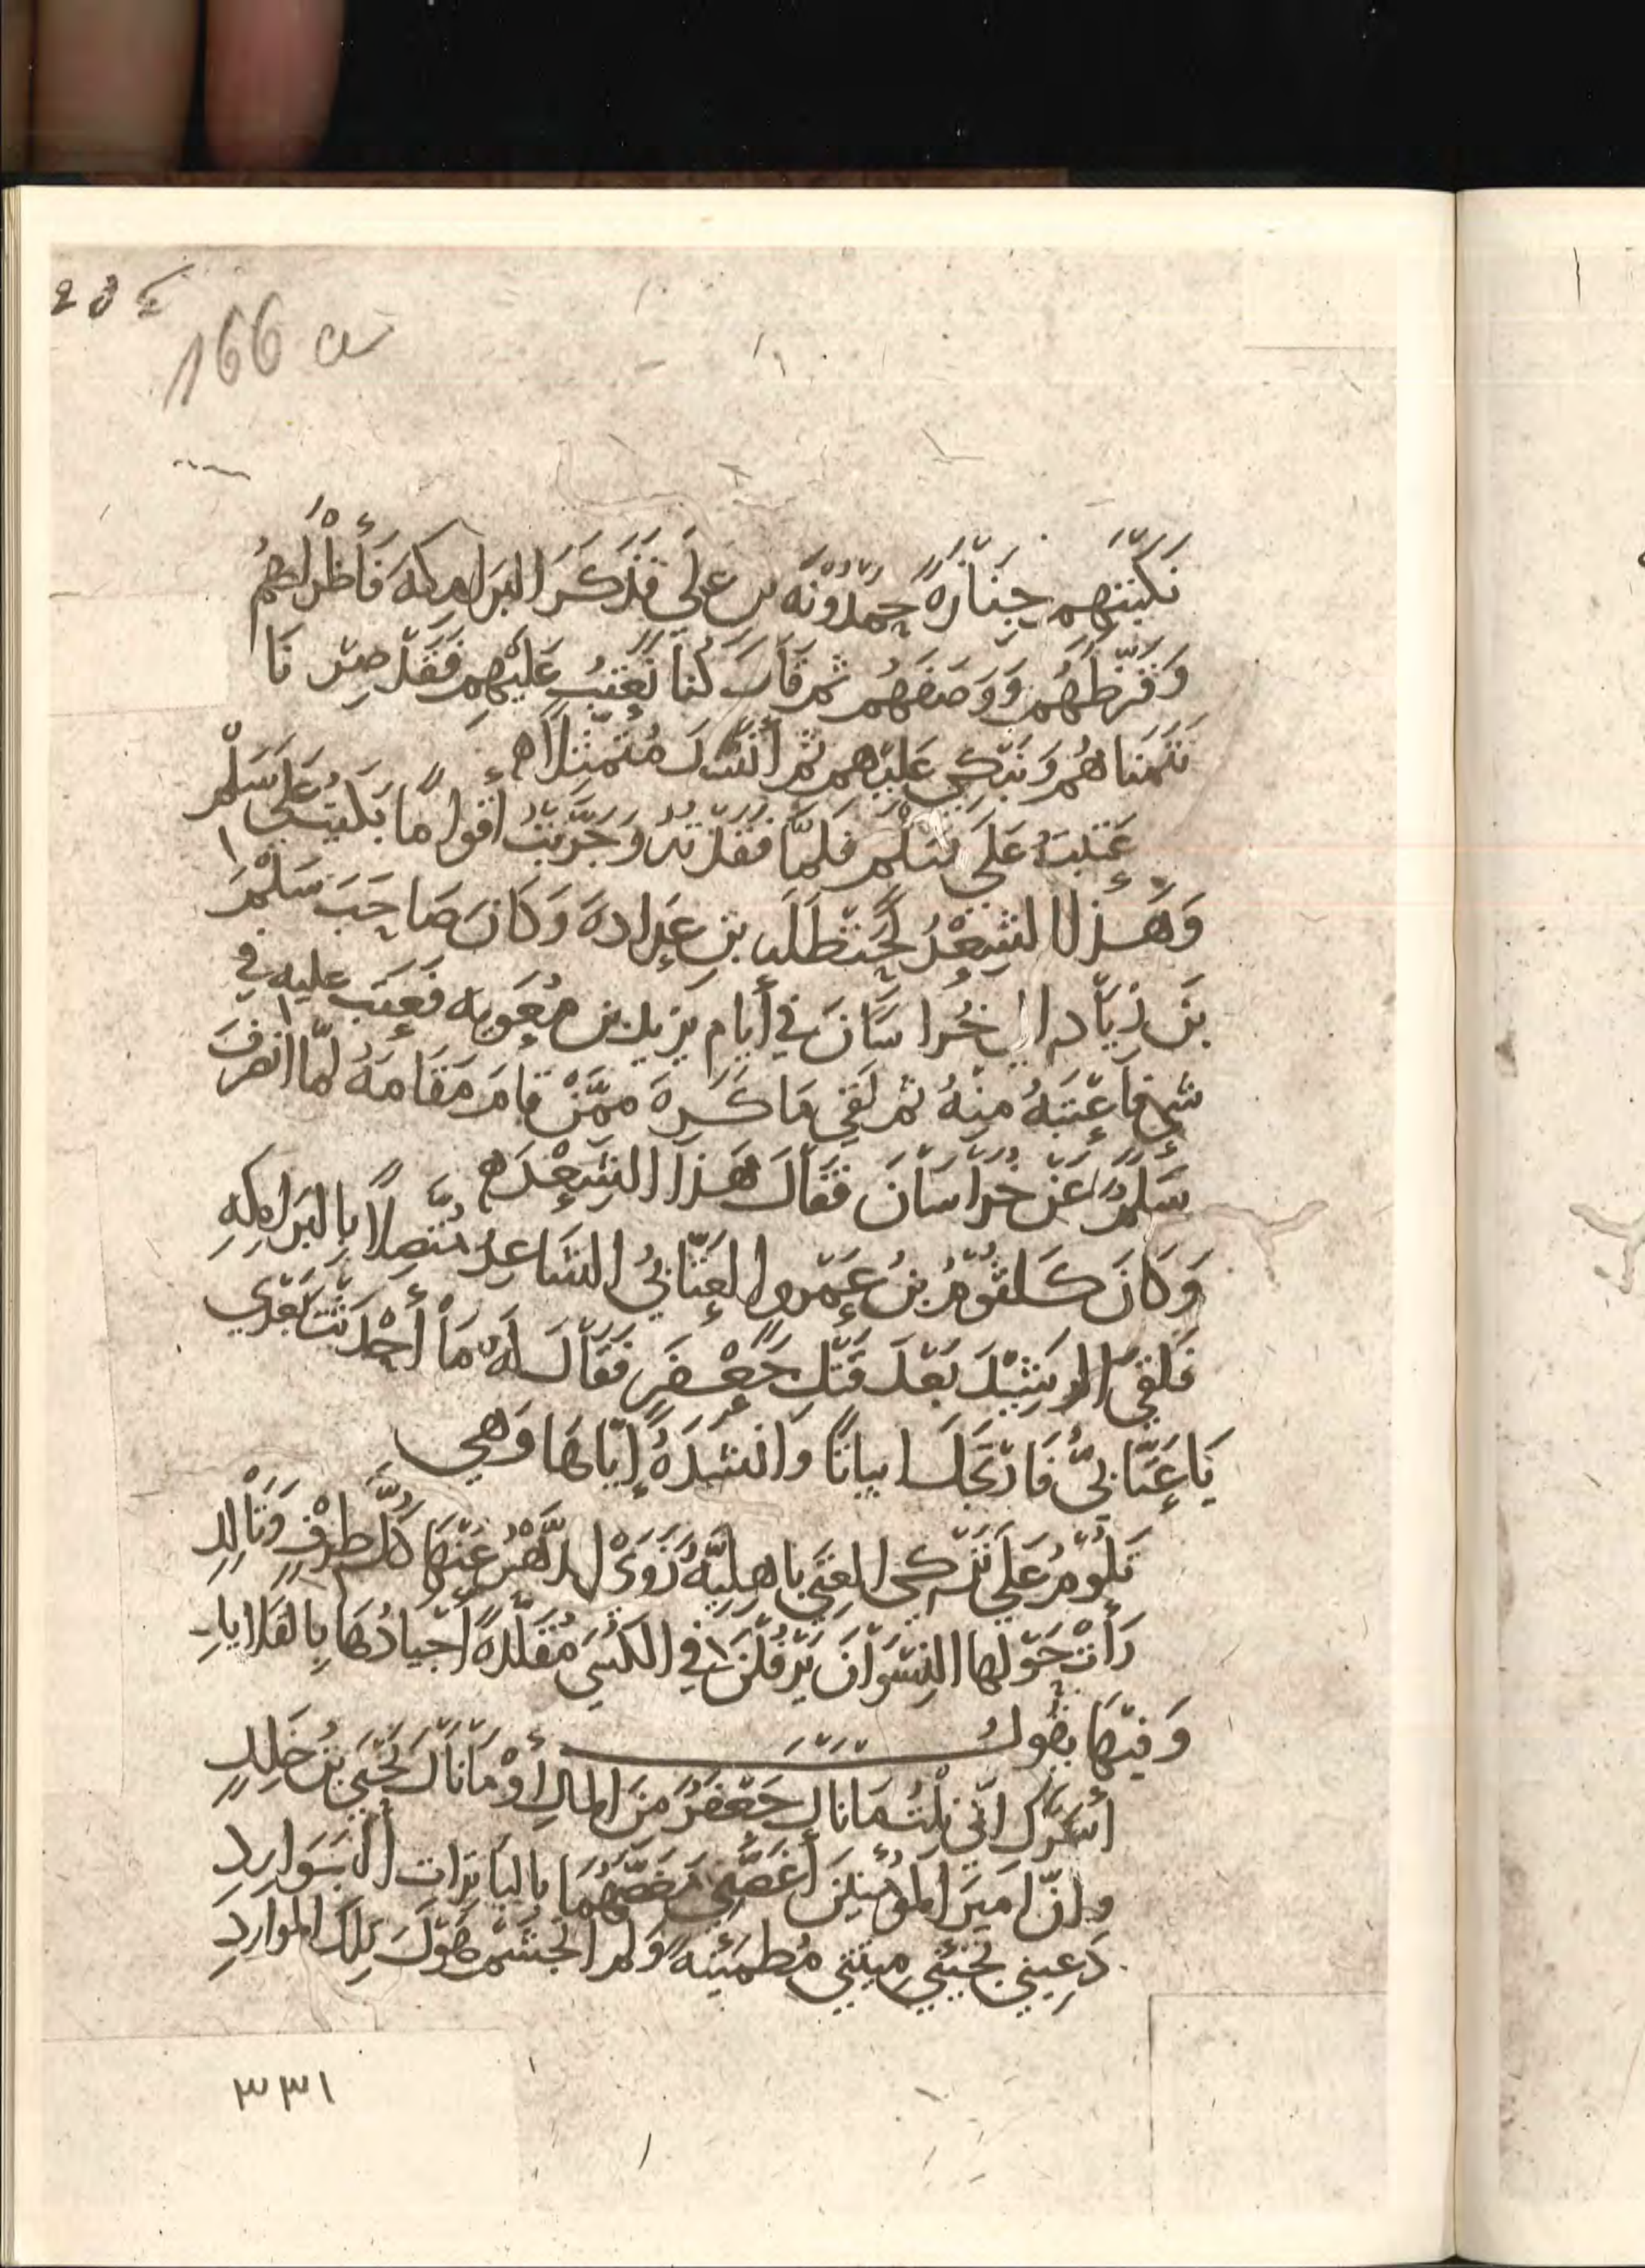 166 a
نكبتهم جنازة حمدونة بن علي فذكر البرامكة فأطراهم
وقرظهم ووصفهم ثم قال كنا نعتب عليهم فقد صرنا
نتمناهم ونبكي عليهم ثم أنشد متمثلا
عتبت على سلم فلما فقدته وجربت أقواما بكيت على سلم
وهذا الشعر لحنظلة بن عرادة وكان صاحب سلم
بن زياد الى خراسان في أيام يزيد بن معوية فعتب عليه في
شي فأعتبه منه ثم لقي ما كره ممن قام مقامه لما انصرف
سلم عن خراسان فقال هذا الشعر
وكان كلثوم بن عمرو العتابي الشاعر متصلا بالبرامكة
فلقي الرشيد بعد قتل جعفر فقال له ما أحدثت بعدي
يا عتابي فارتجل ابياتا وانشده إياها وهي
تلوم على ترك الغنى باهلية زوى الدهر عنها كل طرف وتالد
رأت حولها النسوان يرفلن في الكسى مقلدة أجيادها بالقلايد
وفيها يقول
أسرك اني نلت ما نال جعفر من المال أو ما نال يحيى بن خلد
وإن امير المؤمنين أغصني مغصهما بالباترات البوارد
دعيني تجئني ميتتي مطمئنة ولم اتجشم هول تلك الموارد
٣٣١